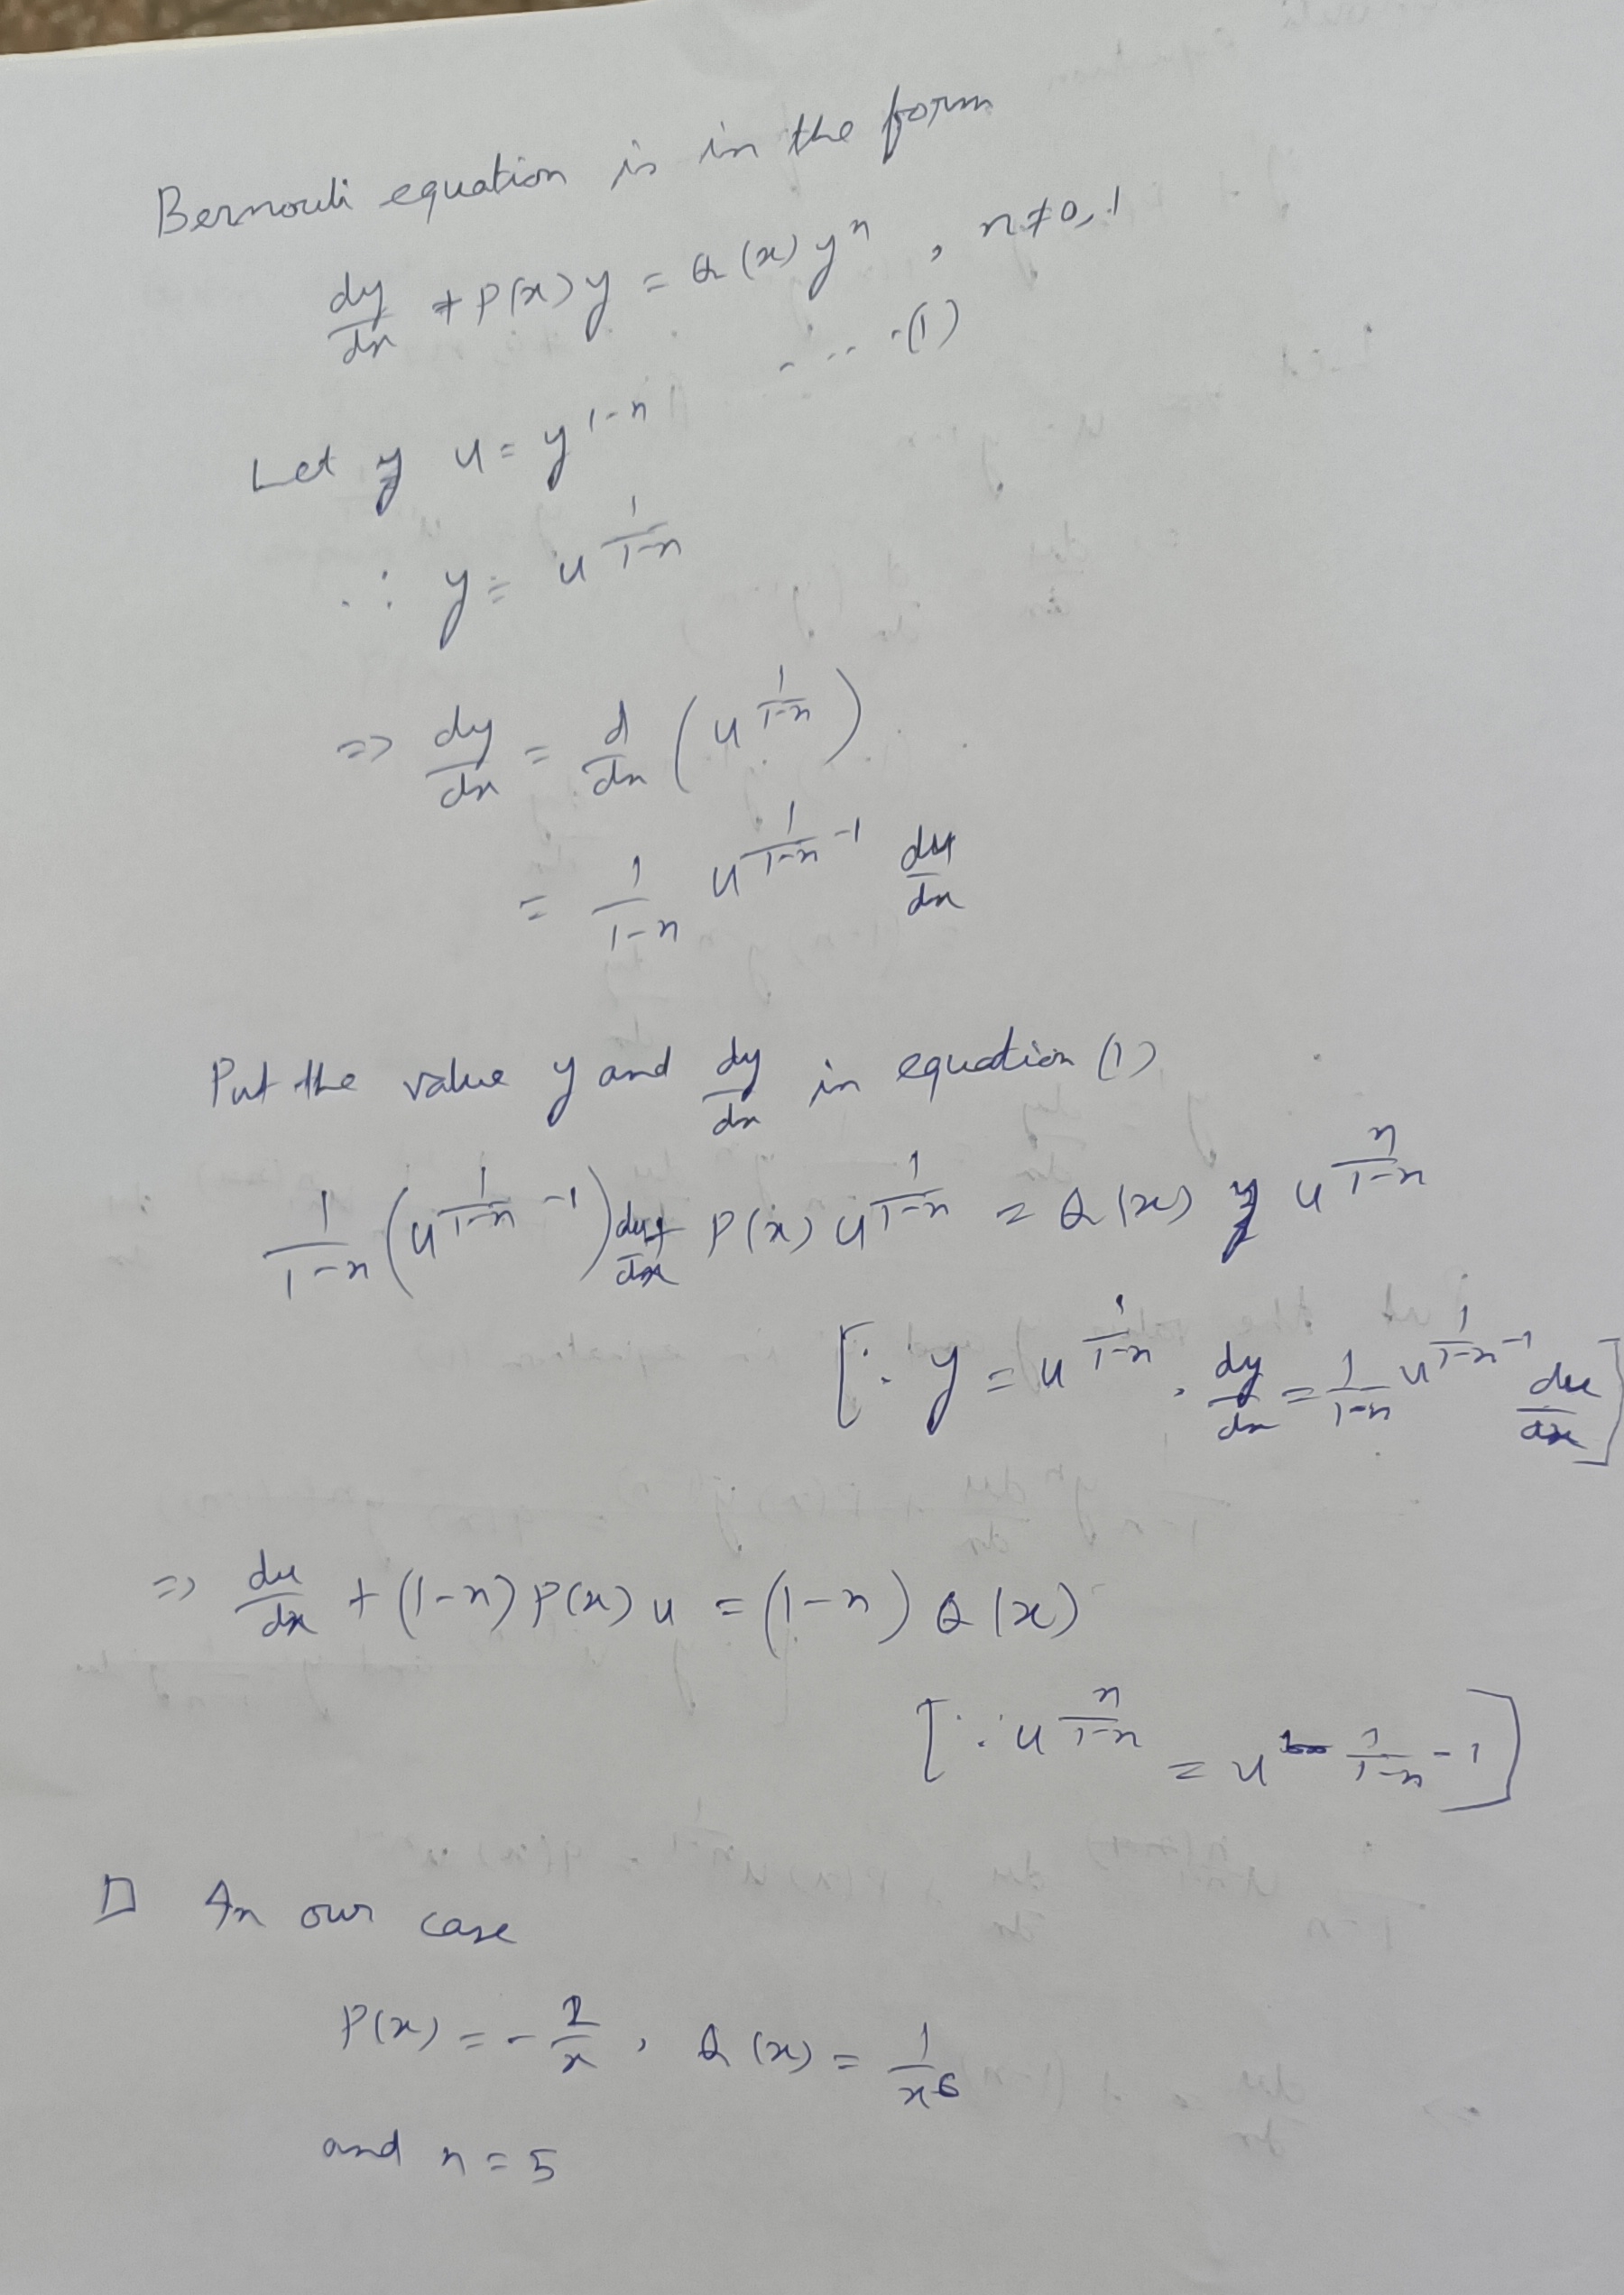 Bernouli equation is in the form
dy/dx + P(x) y = Q(x) y^n , n ≠ 0, 1
- - - - (1)
Let y u = y^(1-n)
∴ y = u^(1/(1-n))
=> dy/dx = d/dx (u^(1/(1-n)))
= 1/(1-n) u^(1/(1-n) - 1) du/dx
Put the value y and dy/dx in equation (1)
1/(1-n) (u^(1/(1-n) - 1)) du/dx + P(x) u^(1/(1-n)) = Q(x) y u^(n/(1-n))
[∵ y = u^(1/(1-n)), dy/dx = 1/(1-n) u^(1/(1-n) - 1) du/dx]
=> du/dx + (1-n) P(x) u = (1-n) Q(x)
[∵ u^(n/(1-n)) = u^(1/(1-n) - 1)]
□ In our case
P(x) = - 2/x , Q(x) = 1/x^6
and n = 5